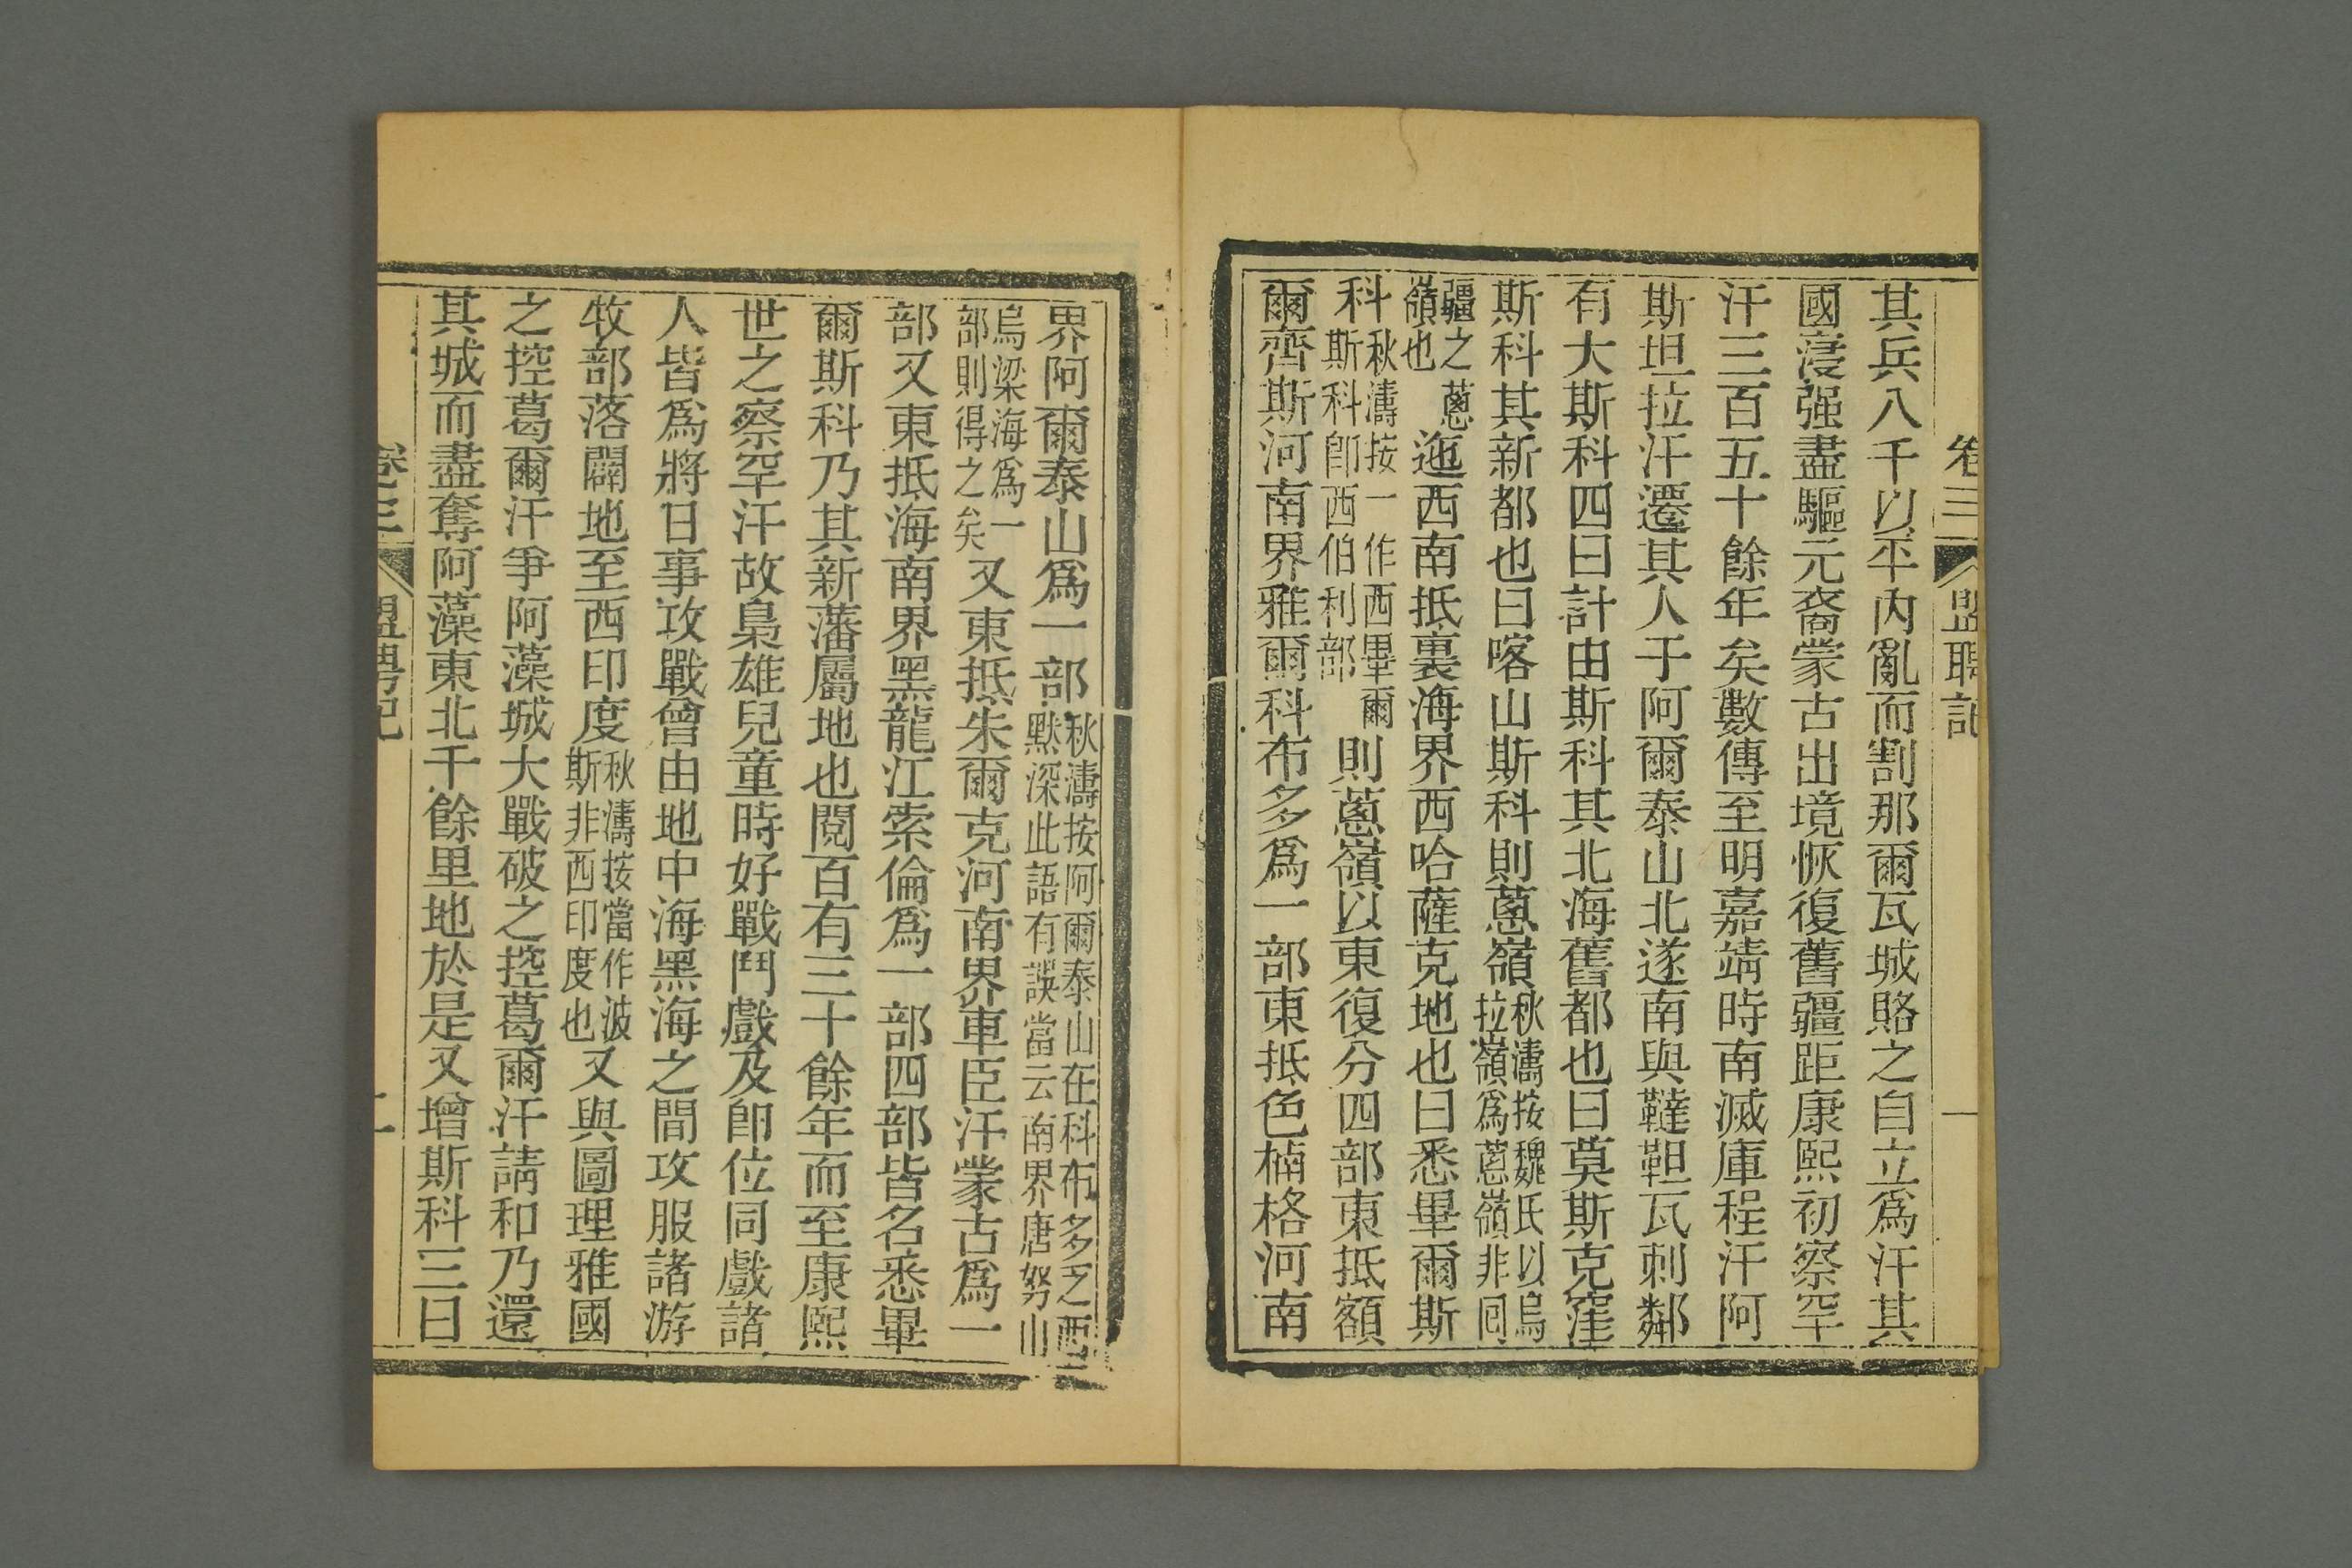 卷三
盟聘記
一
其兵八千以平內亂而割那爾瓦城賂之自立爲汗其
國寖强盡驅元裔蒙古出境恢復舊疆距康熙初察罕
汗三百五十餘年矣數傳至明嘉靖時南滅庫程汗阿
斯坦拉汗遷其人于阿爾泰山北遂南與韃靼瓦剌鄰
有大斯科四曰計由斯科其北海舊都也曰莫斯克窪
斯科其新都也曰喀山斯科則蔥嶺秋濤按魏氏以烏拉嶺爲蔥嶺非回
疆之蔥嶺也迤西南抵裏海界西哈薩克地也曰悉畢爾斯
科秋濤按一作西畢爾斯科卽西伯利部則蔥嶺以東復分四部東抵額
爾齊斯河南界雅爾科布多爲一部東抵色楠格河南
界阿爾泰山爲一部秋濤按阿爾泰山在科布多之西默深此語有誤當云南界唐努山
烏梁海爲一部則得之矣又東抵朱爾克河南界車臣汗蒙古爲一
部又東抵海南界黑龍江索倫爲一部四部皆名悉畢
爾斯科乃其新藩屬地也閱百有三十餘年而至康熙
世之察罕汗故梟雄兒童時好戰鬥戲及卽位同戲諸
人皆爲將日事攻戰曾由地中海黑海之間攻服諸游
牧部落闢地至西印度秋濤按當作波斯非西印度也又與圖理雅國
之控葛爾汗爭阿藻城大戰破之控葛爾汗請和乃還
其城而盡奪阿藻東北千餘里地於是又增斯科三曰
卷三
盟聘記
二